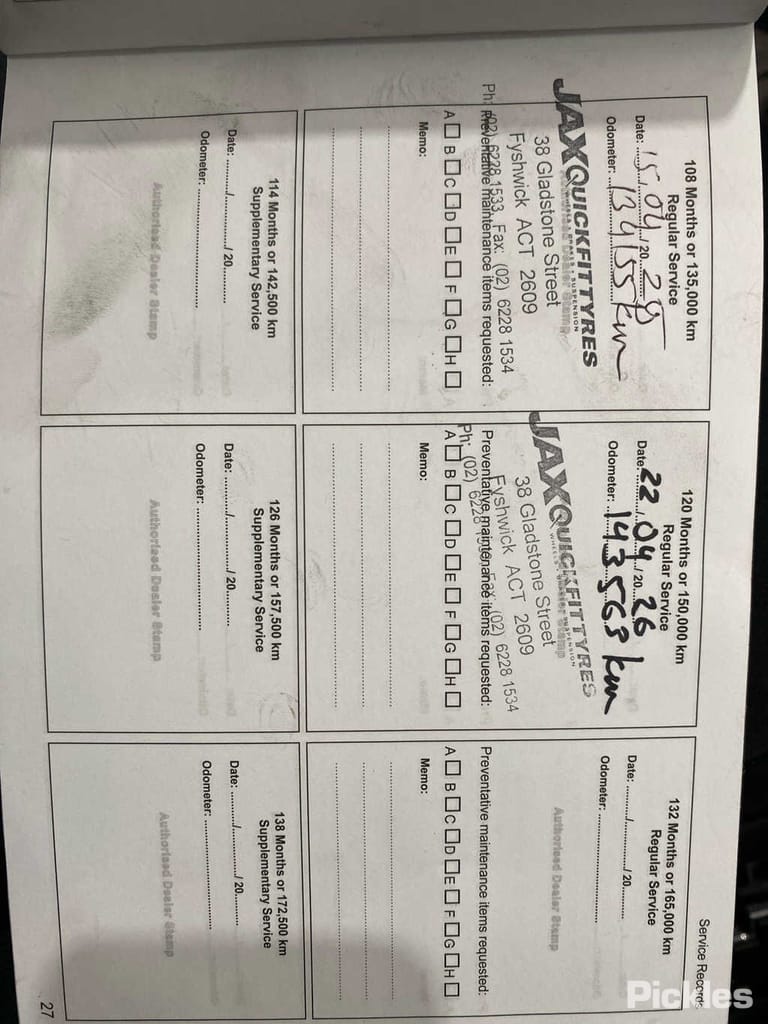 Service Records
108 Months or 135,000 km
Regular Service
Date: 15/04/20
Odometer: 134155 km
JAXQUICKFITTYRES
WHEELS • BRAKES • SUSPENSION
38 Gladstone Street
Fyshwick ACT 2609
Ph: (02) 6228 1533 Fax: (02) 6228 1534
Preventative maintenance items requested:
A B C D E F G H
Memo:
120 Months or 150,000 km
Regular Service
Date: 22/04/2026
Odometer: 143563 km
JAXQUICKFITTYRES
38 Gladstone Street
Fyshwick ACT 2609
Ph: (02) 6228 1533 Fax: (02) 6228 1534
Preventative maintenance items requested:
A B C D E F G H
Memo:
132 Months or 165,000 km
Regular Service
Date: ........./........./ 20.........
Odometer: ..............................
Authorised Dealer Stamp
Preventative maintenance items requested:
A B C D E F G H
Memo:
114 Months or 142,500 km
Supplementary Service
Date: ........./........./ 20.........
Odometer: ..............................
Authorised Dealer Stamp
126 Months or 157,500 km
Supplementary Service
Date: ........./........./ 20.........
Odometer: ..............................
Authorised Dealer Stamp
138 Months or 172,500 km
Supplementary Service
Date: ........./........./ 20.........
Odometer: ..............................
Authorised Dealer Stamp
27
Pickles